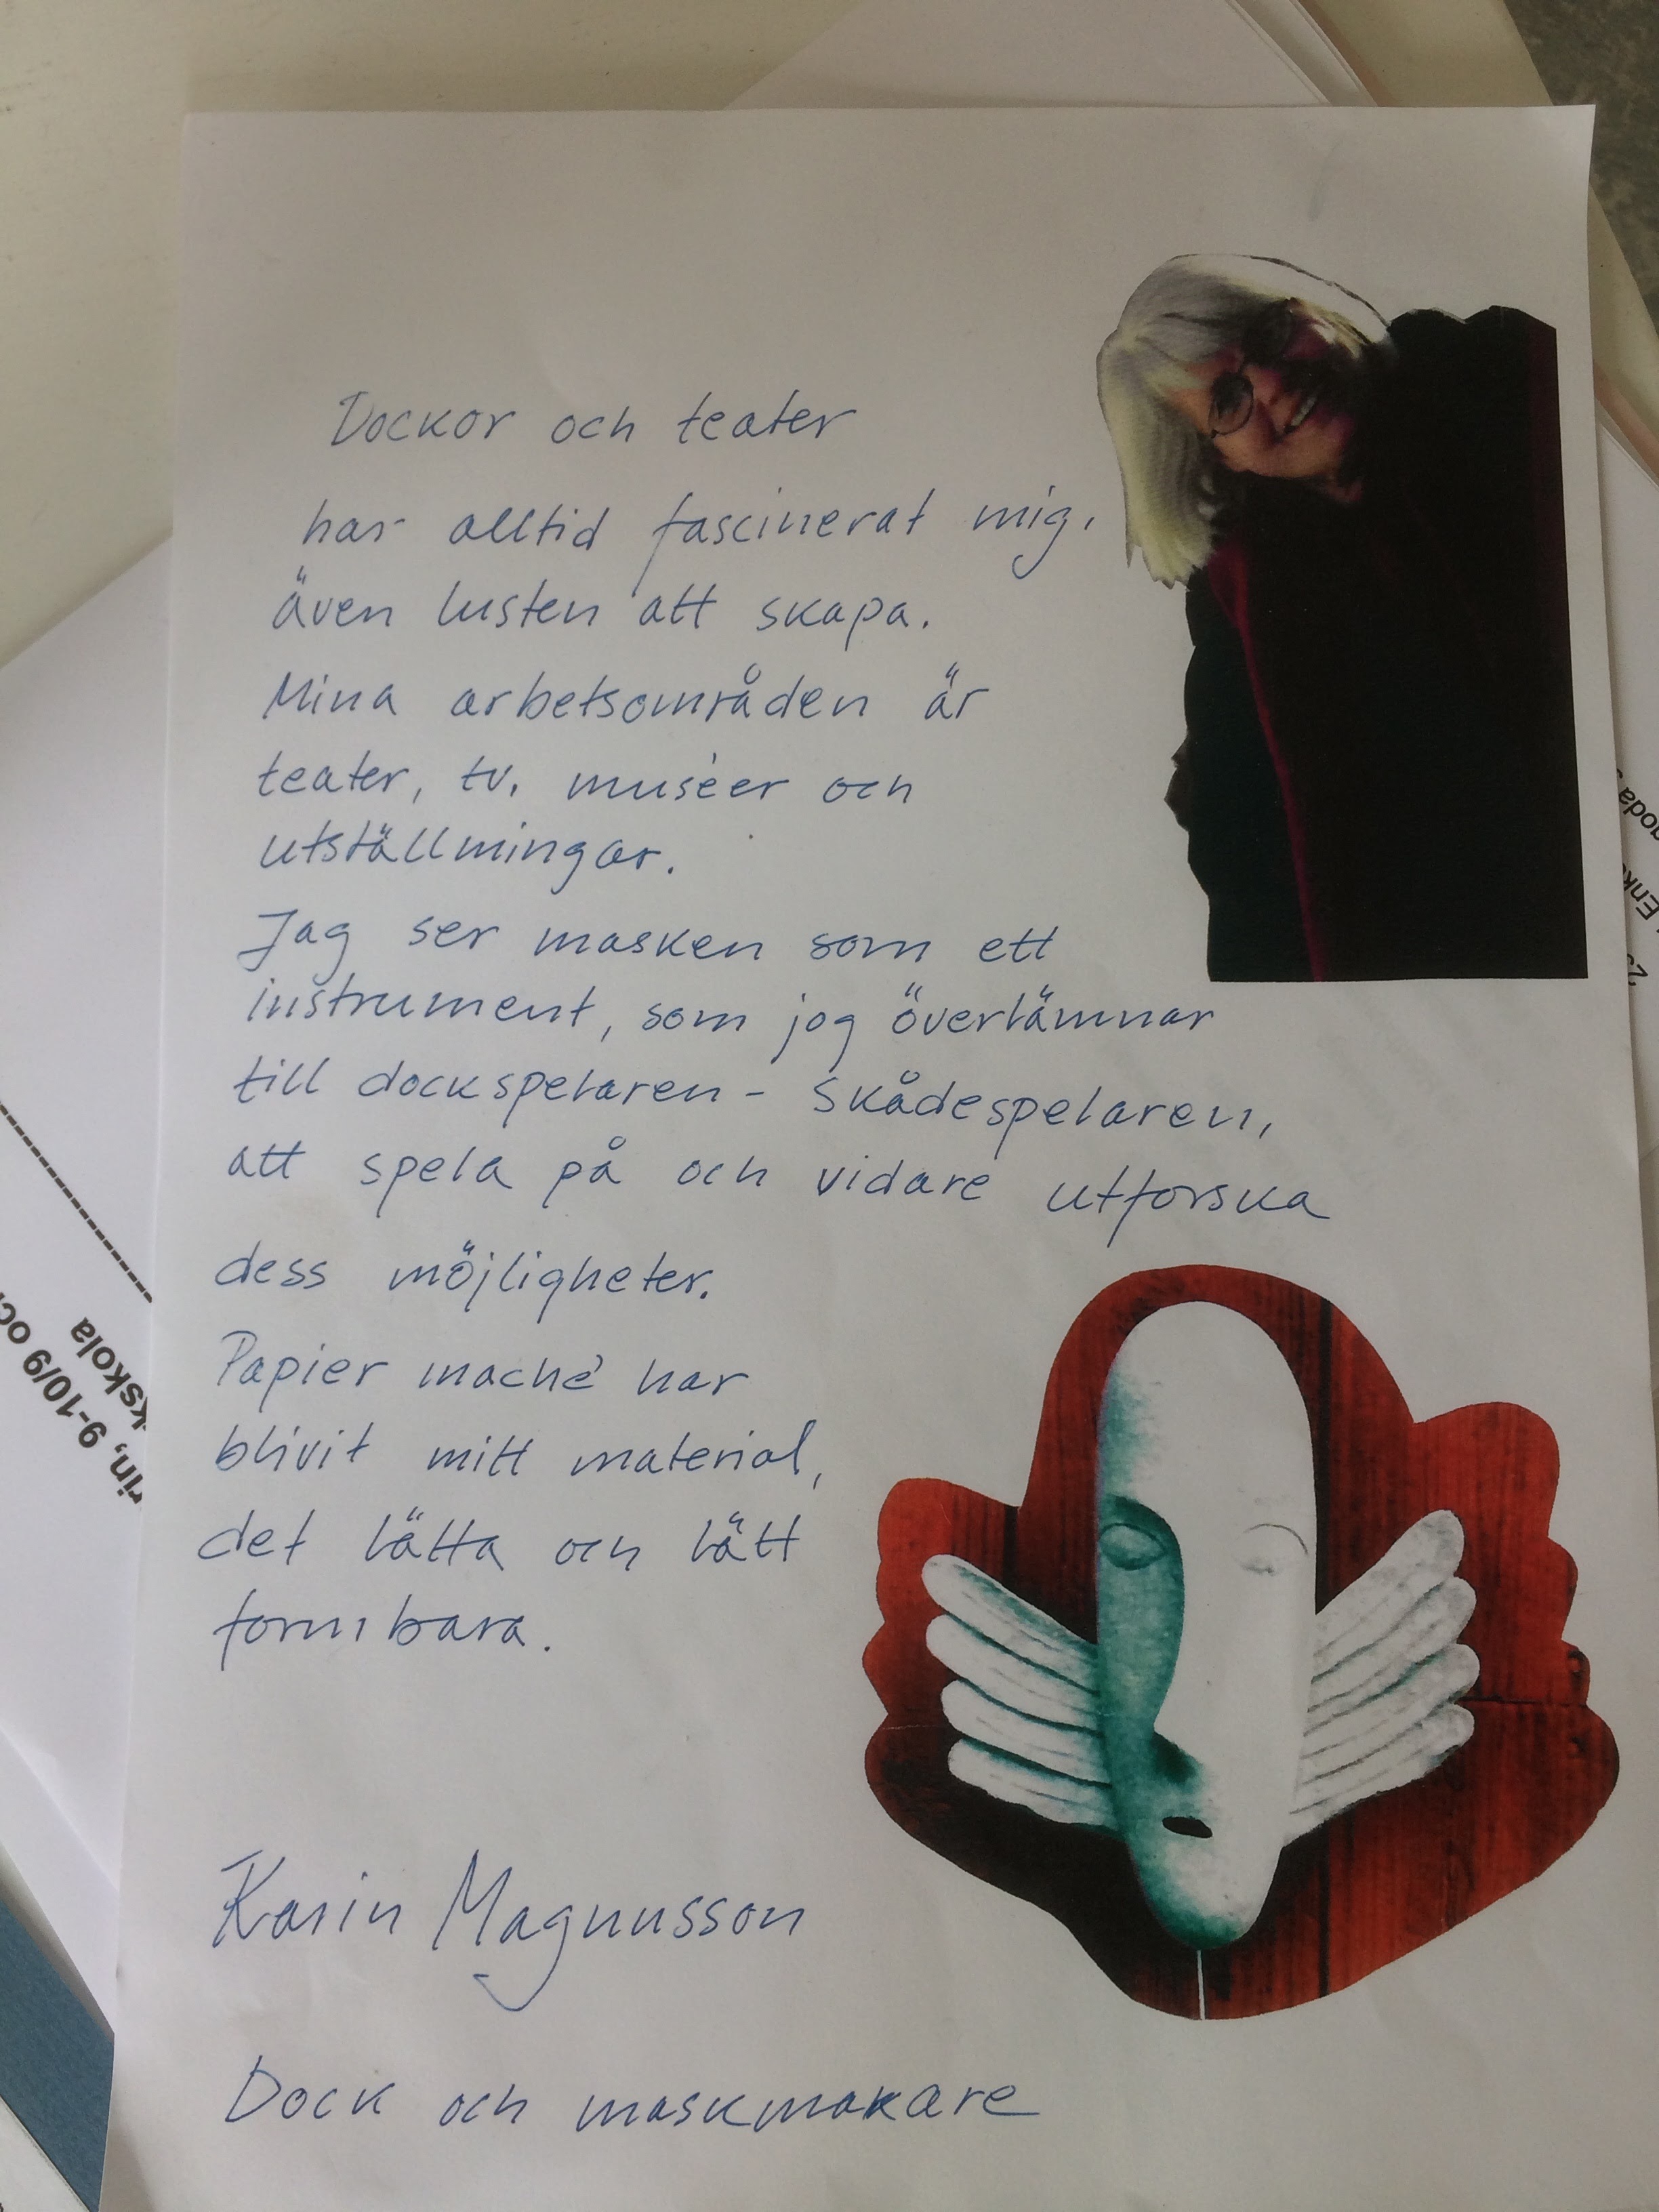 Dockor och teater
har alltid fascinerat mig.
även lusten att skapa.
Mina arbetsområden är
teater, tv. muséer och
utställningar.
Jag ser masken som ett
instrument, som jag överlämnar
till dockspelaren - skådespelaren,
att spela på och vidare utforska
dess möjligheter.
Papier maché har
blivit mitt material,
det lätta och lätt
formbara.
Karin Magnusson
Dock och maskmakare
rin, 9-10/9 oc
kskola
goda
Enk